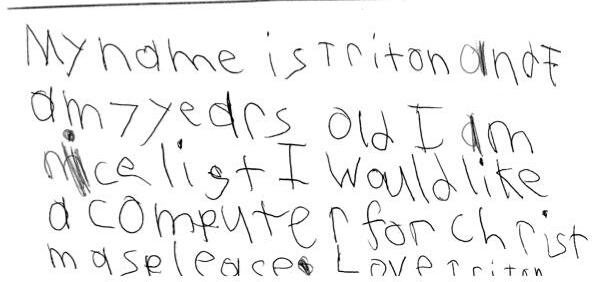 My name is Triton and I
am 7 years old I am
nice list I would like
a computer for christ
mas pleace. Love Triton